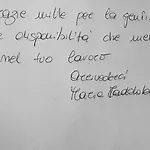 grazie mille per la gentil
e disponibilità che met
nel tuo lavoro
Arrivederci
Maria